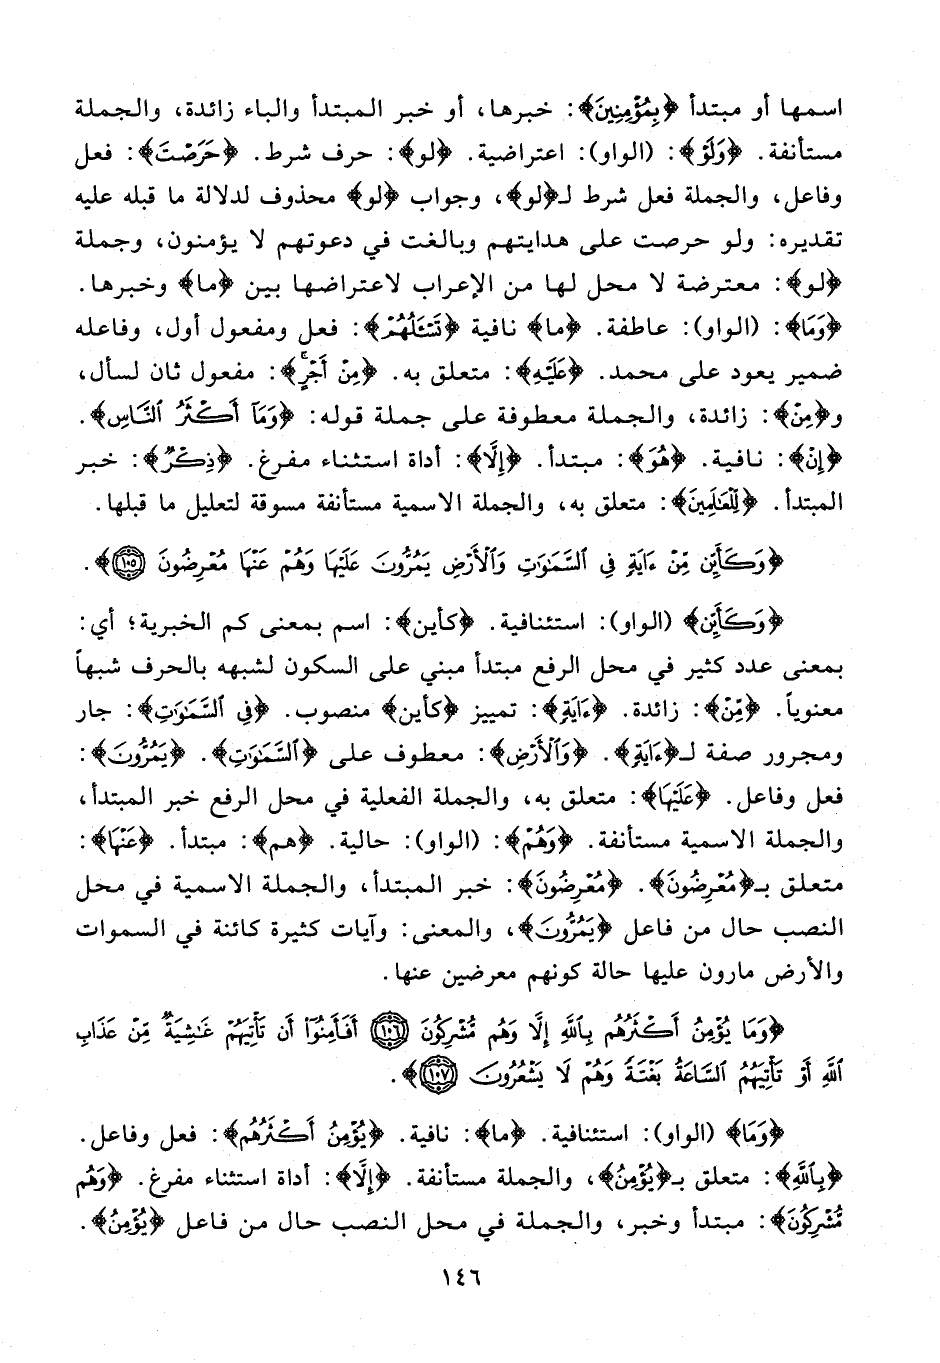 اسمها أو مبتدأ ﴿بِمُؤْمِنِينَ﴾: خبرها، أو خبر المبتدأ والباء زائدة، والجملة
مستأنفة. ﴿وَلَوْ﴾: (الواو): اعتراضية. ﴿لو﴾: حرف شرط. ﴿حَرَصْتَ﴾: فعل
وفاعل، والجملة فعل شرط لـ﴿لو﴾، وجواب ﴿لو﴾ محذوف لدلالة ما قبله عليه
تقديره: ولو حرصت على هدايتهم وبالغت في دعوتهم لا يؤمنون، وجملة
﴿لو﴾: معترضة لا محل لها من الإعراب لاعتراضها بين ﴿ما﴾ وخبرها.
﴿وَمَا﴾: (الواو): عاطفة. ﴿ما﴾ نافية ﴿تَسْـَٔلُهُمْ﴾: فعل ومفعول أول، وفاعله
ضمير يعود على محمد. ﴿عَلَيْهِ﴾: متعلق به. ﴿مِنْ أَجْرٍ﴾: مفعول ثان لسأل،
و﴿مِنْ﴾: زائدة، والجملة معطوفة على جملة قوله: ﴿وَمَآ أَكْثَرُ ٱلنَّاسِ﴾.
﴿إِنْ﴾: نافية. ﴿هُوَ﴾: مبتدأ. ﴿إِلَّا﴾: أداة استثناء مفرغ. ﴿ذِكْرٌ﴾: خبر
المبتدأ. ﴿لِّلْعَٰلَمِينَ﴾: متعلق به، والجملة الاسمية مستأنفة مسوقة لتعليل ما قبلها.
﴿وَكَأَيِّن مِّنْ ءَايَةٍ فِي ٱلسَّمَٰوَٰتِ وَٱلْأَرْضِ يَمُرُّونَ عَلَيْهَا وَهُمْ عَنْهَا مُعْرِضُونَ ١٠٥﴾.
﴿وَكَأَيِّن﴾ (الواو): استئنافية. ﴿كأين﴾: اسم بمعنى كم الخبرية؛ أي:
بمعنى عدد كثير في محل الرفع مبتدأ مبني على السكون لشبهه بالحرف شبهاً
معنوياً. ﴿مِّنْ﴾: زائدة. ﴿ءَايَةٍ﴾: تمييز ﴿كأين﴾ منصوب. ﴿فِي ٱلسَّمَٰوَٰتِ﴾: جار
ومجرور صفة لـ﴿ءَايَةٍ﴾. ﴿وَٱلْأَرْضِ﴾: معطوف على ﴿ٱلسَّمَٰوَٰتِ﴾. ﴿يَمُرُّونَ﴾:
فعل وفاعل. ﴿عَلَيْهَا﴾: متعلق به، والجملة الفعلية في محل الرفع خبر المبتدأ،
والجملة الاسمية مستأنفة. ﴿وَهُمْ﴾: (الواو): حالية. ﴿هم﴾: مبتدأ. ﴿عَنْهَا﴾:
متعلق بـ﴿مُعْرِضُونَ﴾. ﴿مُعْرِضُونَ﴾: خبر المبتدأ، والجملة الاسمية في محل
النصب حال من فاعل ﴿يَمُرُّونَ﴾، والمعنى: وآيات كثيرة كائنة في السموات
والأرض مارون عليها حالة كونهم معرضين عنها.
﴿وَمَا يُؤْمِنُ أَكْثَرُهُم بِٱللَّهِ إِلَّا وَهُم مُّشْرِكُونَ ١٠٦ أَفَأَمِنُوٓا۟ أَن تَأْتِيَهُمْ غَٰشِيَةٌ مِّنْ عَذَابِ
ٱللَّهِ أَوْ تَأْتِيَهُمُ ٱلسَّاعَةُ بَغْتَةً وَهُمْ لَا يَشْعُرُونَ ١٠٧﴾.
﴿وَمَا﴾ (الواو): استئنافية. ﴿ما﴾: نافية. ﴿يُؤْمِنُ أَكْثَرُهُم﴾: فعل وفاعل.
﴿بِٱللَّهِ﴾: متعلق بـ﴿يُؤْمِنُ﴾، والجملة مستأنفة. ﴿إِلَّا﴾: أداة استثناء مفرغ. ﴿وَهُم
مُّشْرِكُونَ﴾: مبتدأ وخبر، والجملة في محل النصب حال من فاعل ﴿يُؤْمِنُ﴾.
١٤٦